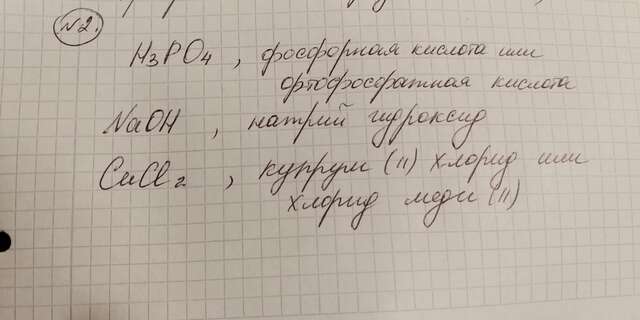 №2.
H₃PO₄, фосфорная кислота или
ортофосфатная кислота
NaOH, натрий гидроксид
CuCl₂, купрум (II) хлорид или
хлорид меди (II)